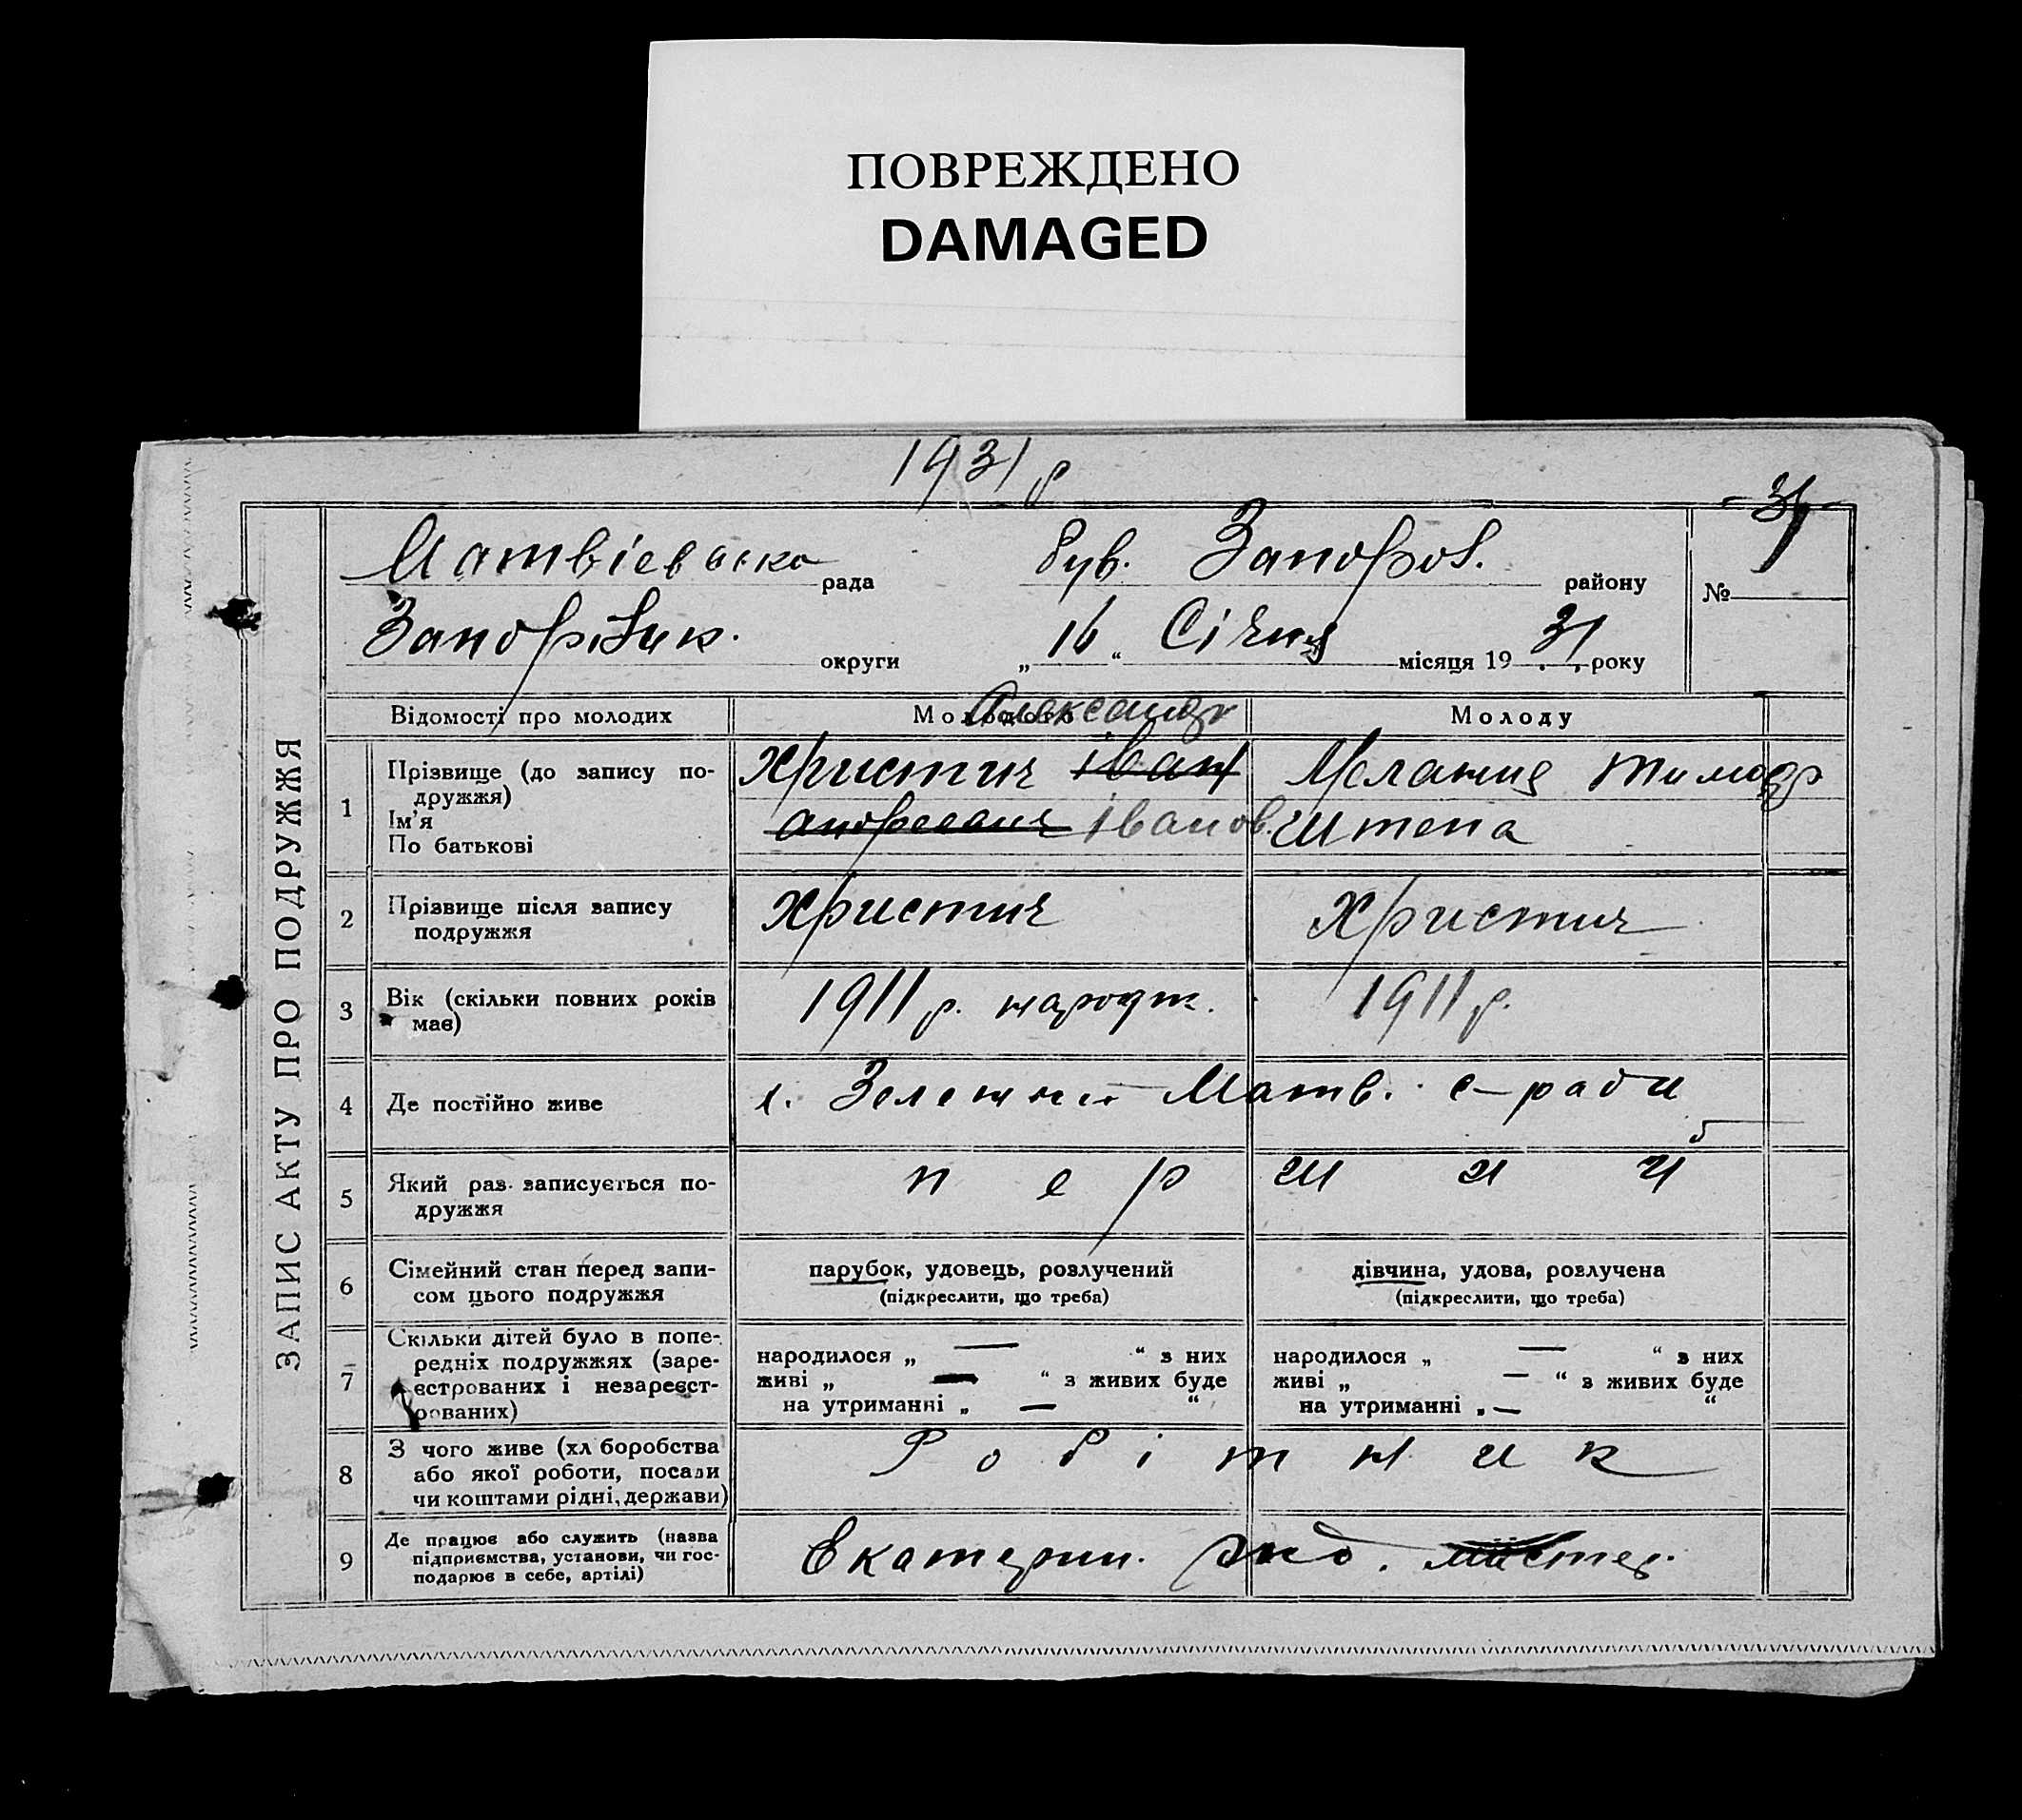 ПОВРЕЖДЕНО
DAMAGED
1931 р
Матвієвська рада був. Запоріз. району №
Запорізьк. округи „ 16 “ Січня місяця 19 31 року
ЗАПИС АКТУ ПРО ПОДРУЖЖЯ
Александр
Відомості про молодих Молодого Молоду
1 Прізвище (до запису по-
дружжя)
Ім'я
По батькові
Христич Іван
Іванов.
Мелания Тимоф
Штепа
2 Прізвище після запису
подружжя
Христич Христич
3 Вік (скільки повних років
має)
1911 р. народж. 1911 р.
4 Де постійно живе
х. Зелений Матв. с-ради
5 Який раз записується по-
дружжя
перший
6 Сімейний стан перед запи-
сом цього подружжя
парубок, удовець, розлучений
(підкреслити, що треба)
дівчина, удова, розлучена
(підкреслити, що треба)
7 Скільки дітей було в попе-
редніх подружжях (заре-
єстрованих і незареєст-
рованих)
народилося „ — “ з них
живі „ — “ з живих буде
на утриманні „ — “
народилося „ — “ з них
живі „ — “ з живих буде
на утриманні „ — “
8 З чого живе (хліборобства
або якої роботи, посади
чи коштами рідні, держави)
Робітник
9 Де працює або служить (назва
підприємства, установи, чи гос-
подарює в себе, артілі)
Екатерин.